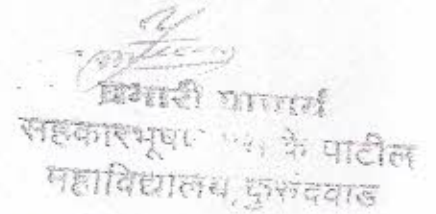 प्रभारी प्राचार्य
सहकारभूषण के पाटील
महाविद्यालय, कुरुंदवाड